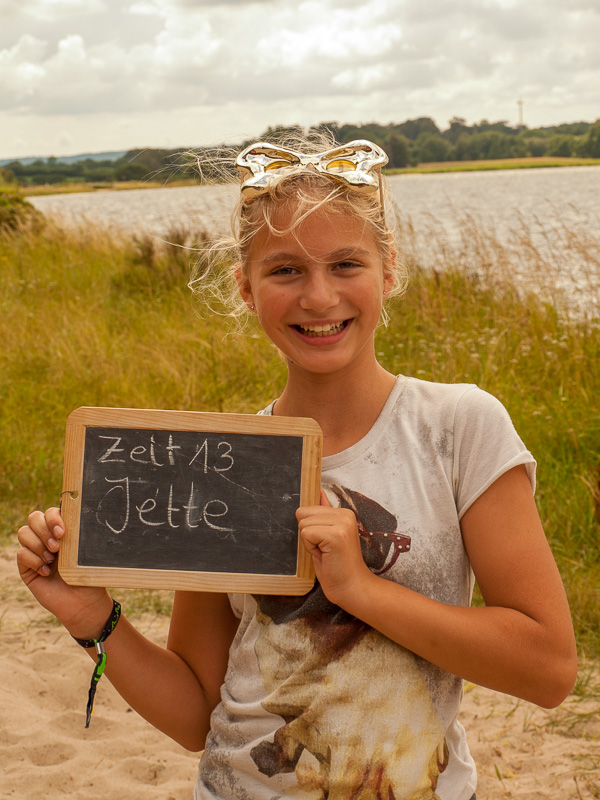 Zeit 13
Jette